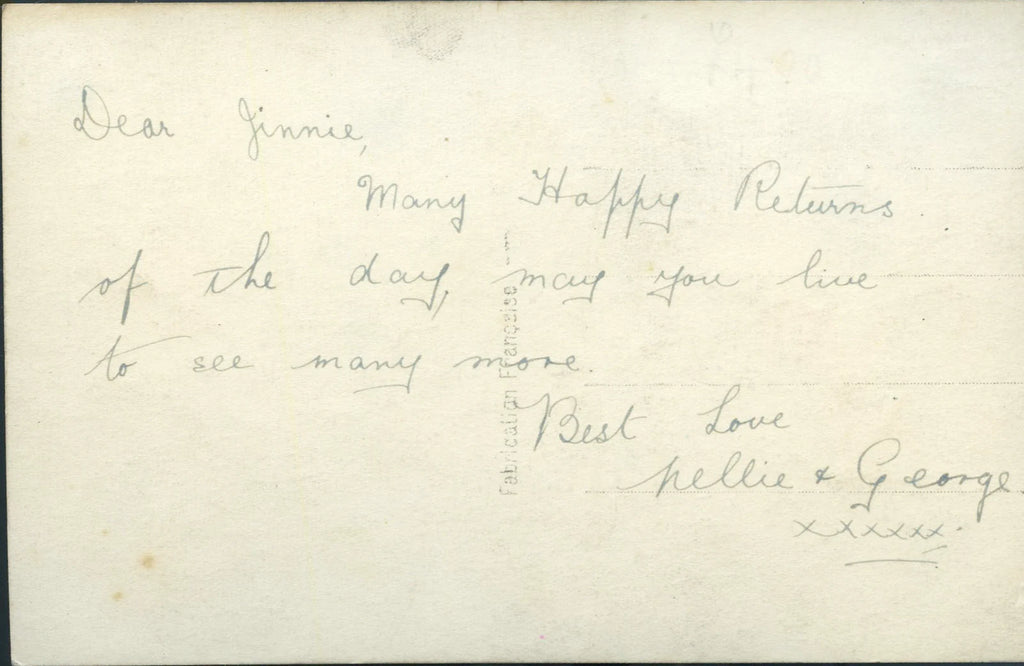 Dear Jinnie,
Many Happy Returns
of the day, may you live
to see many more.
Best Love
Nellie + George.
xxxxxx.
Fabrication Française